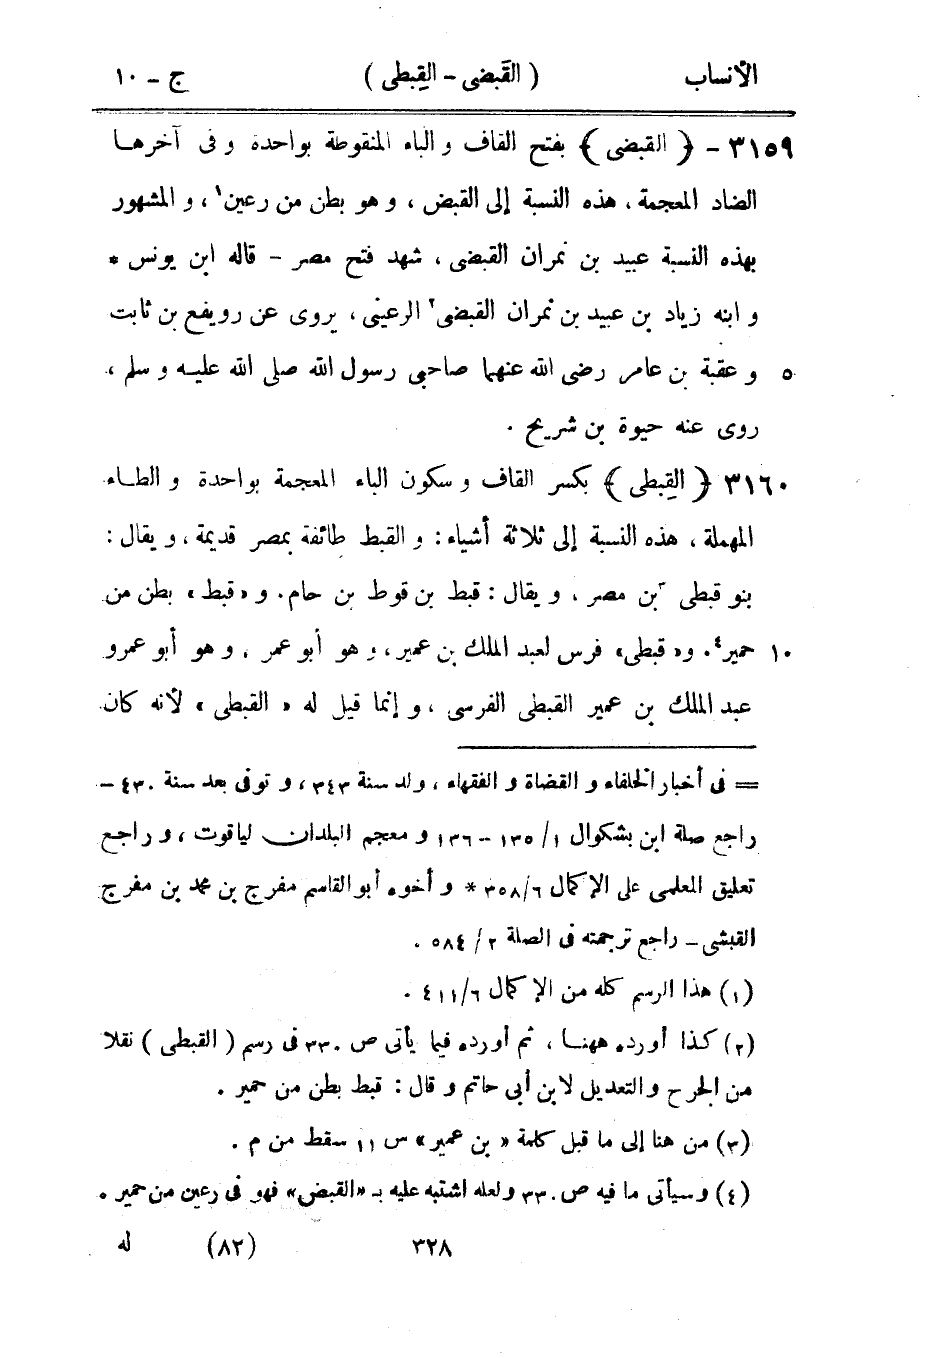 الأنساب ( القَبضى - القِبطى ) ج - ١٠
٣١٥٩ - ﴿ القبضى ﴾ بفتح القاف و الباء المنقوطة بواحدة و فى آخرها
الضاد المعجمة ، هذه النسبة إلى القبض ، و هو بطن من رعين١ ، و المشهور
بهذه النسبة عبيد بن نمران القبضى ، شهد فتح مصر - قاله ابن يونس *
و ابنه زياد بن عبيد بن نمران القبضى٢ الرعينى ، يروى عن رويفع بن ثابت
٥ و عقبة بن عامر رضى الله عنهما صاحبى رسول الله صلى الله عليه و سلم ،
روى عنه حيوة بن شريح .
٣١٦٠ ﴿ القِبطى ﴾ بكسر القاف و سكون الباء المعجمة بواحدة و الطاء
المهملة ، هذه النسبة إلى ثلاثة أشياء : و القبط طائفة بمصر قديمة ، و يقال :
بنو قبطى ٣بن مصر ، و يقال : قبط بن قوط بن حام . و « قبط » بطن من
١٠ حمير٤ . و « قبطى » فرس لعبد الملك بن عمير ، و هو أبو عمر ، و هو أبو عمرو
عبد الملك بن عمير القبطى الفرسى ، و إنما قيل له « القبطى » لأنه كان
= فى أخبار الخلفاء و القضاة و الفقهاء ، ولد سنة ٣٤٣ ، و توفى بعد سنة ٤٣٠ -
راجع صلة ابن بشكوال ١ / ١٣٥ - ١٣٦ و معجم البلدان لياقوت ، و راجع
تعليق المعلمى على الإكمال ٦/ ٣٥٨ * و أخوه أبو القاسم مفرج بن محمد بن مفرج
القبشى - راجع ترجمته فى الصلة ٢ / ٥٨٤ .
(١) هذا الرسم كله من الإكمال ٦/ ٤١١ .
(٢) كذا أورده ههنا ، ثم أورده فيما يأتى ص ٣٣٠ فى رسم ( القبطى ) نقلا
من الجرح و التعديل لابن أبى حاتم و قال : قبط بطن من حمير .
(٣) من هنا إلى ما قبل كلمة « بن عمير » س ١١ سقط من م .
(٤) و سيأتى ما فيه ص ٣٣٠ و لعله اشتبه عليه بـ «القبض» فهو فى رعين من حمير .
٣٢٨ (٨٢) له